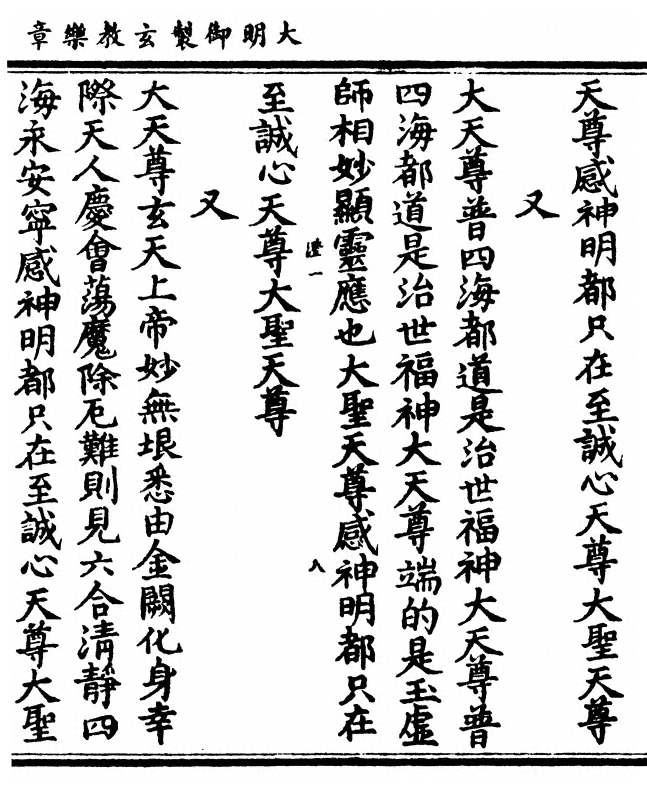 大明御製玄教樂章
天尊感神明都只在至誠心天尊大聖天尊
又
大天尊普四海都道是治世福神大天尊普
四海都道是治世福神大天尊端的是玉虛
師相妙顯靈應也大聖天尊感神明都只在
一
八
至誠心天尊大聖天尊
又
大天尊玄天上帝妙無垠悉由金闕化身幸
際天人慶會蕩魔除厄難則見六合清靜四
海永安寧感神明都只在至誠心天尊大聖